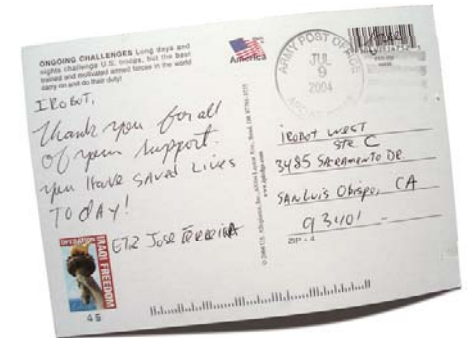 ONGOING CHALLENGES Long days and
nights challenge U.S. troops, but the best
trained and motivated armed forces in the world
carry on and do their duty!
America
ARMY POST OFFICE
JUL
9
2004
IROBOT,
Thank you for all
of your support.
you Have SAVED Lives
TODAY!
ET2 Jose Ferreira
OPERATION
IRAQI FREEDOM
45
IROBOT WEST
STE C
3485 SACRAMENTO DR
SAN LUIS Obispo, CA
93401 -
ZIP + 4